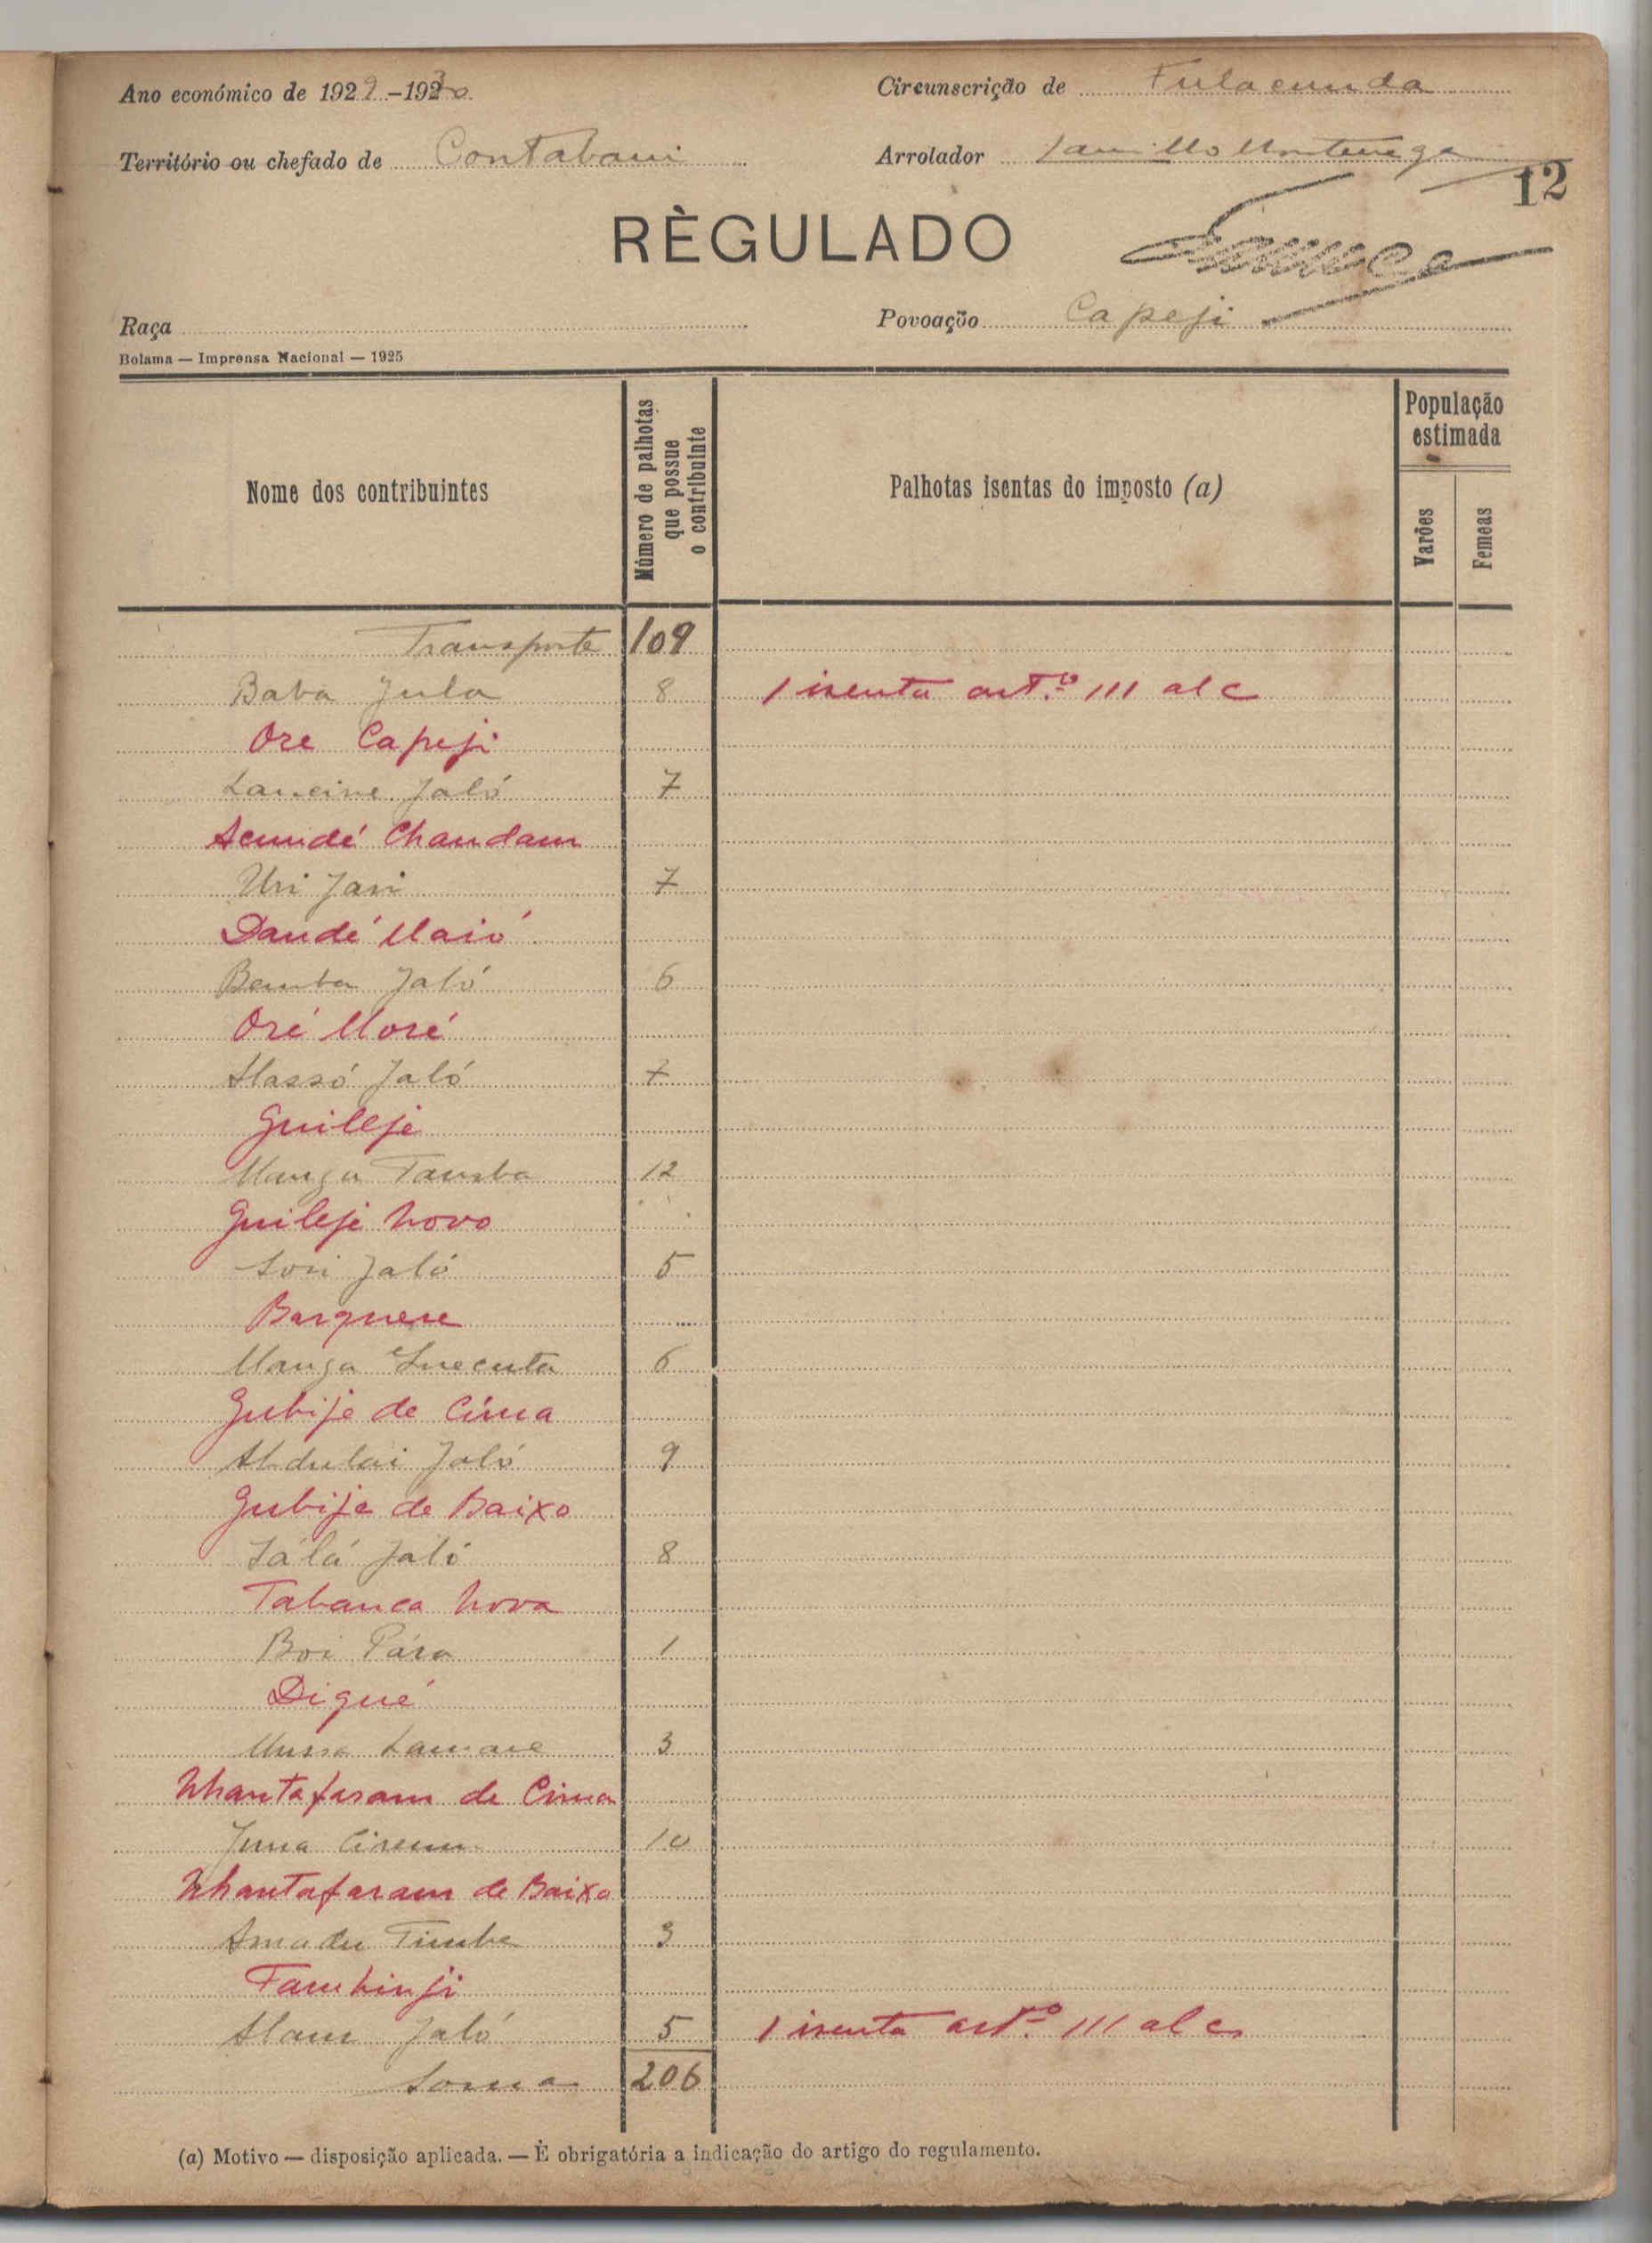 Ano económico de 1929-1930
Circunscrição de Fulacunda
Território ou chefado de Contabani
Arrolador Camillo Montenegro
12
RÈGULADO
Raça
Povoação Capeji
Bolama — Imprensa Nacional — 1925
Nome dos contribuintes
Número de palhotas que possue o contribuinte
Palhotas isentas do imposto (a)
População estimada
Varões
Femeas
Transporte 109
Baba Jula 8 1 isenta art.º 111 al c
Ore Capeji
Lanceine Jaló 7
Acundé Chandam
Uri Jari 7
Dandé Maió
Bemba Jaló 6
Oré Moré
Alassó Jaló 7
Guileje
Manga Tamba 12
Guileje Novo
Sori Jaló 5
Barquere
Manga Suecuta 6
Gubije de Cima
Abdulai Jaló 9
Gubije de Baixo
Jálá Jaló 8
Tabanca Nova
Boi Pára 1
Diqué
Mussa Camare 3
Nhantafaram de Cima
Juma 10
Nhantafaram de Baixo
Amadu Timbe 3
Tambinji
Alam Jaló 5 1 isenta art.º 111 al c
Soma 206
(a) Motivo — disposição aplicada. — È obrigatória a indicação do artigo do regulamento.